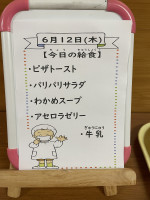 6月12日(木)
【今日の給食】
・ピザトースト
・パリパリサラダ
・わかめスープ
・アセロラゼリー
・牛乳